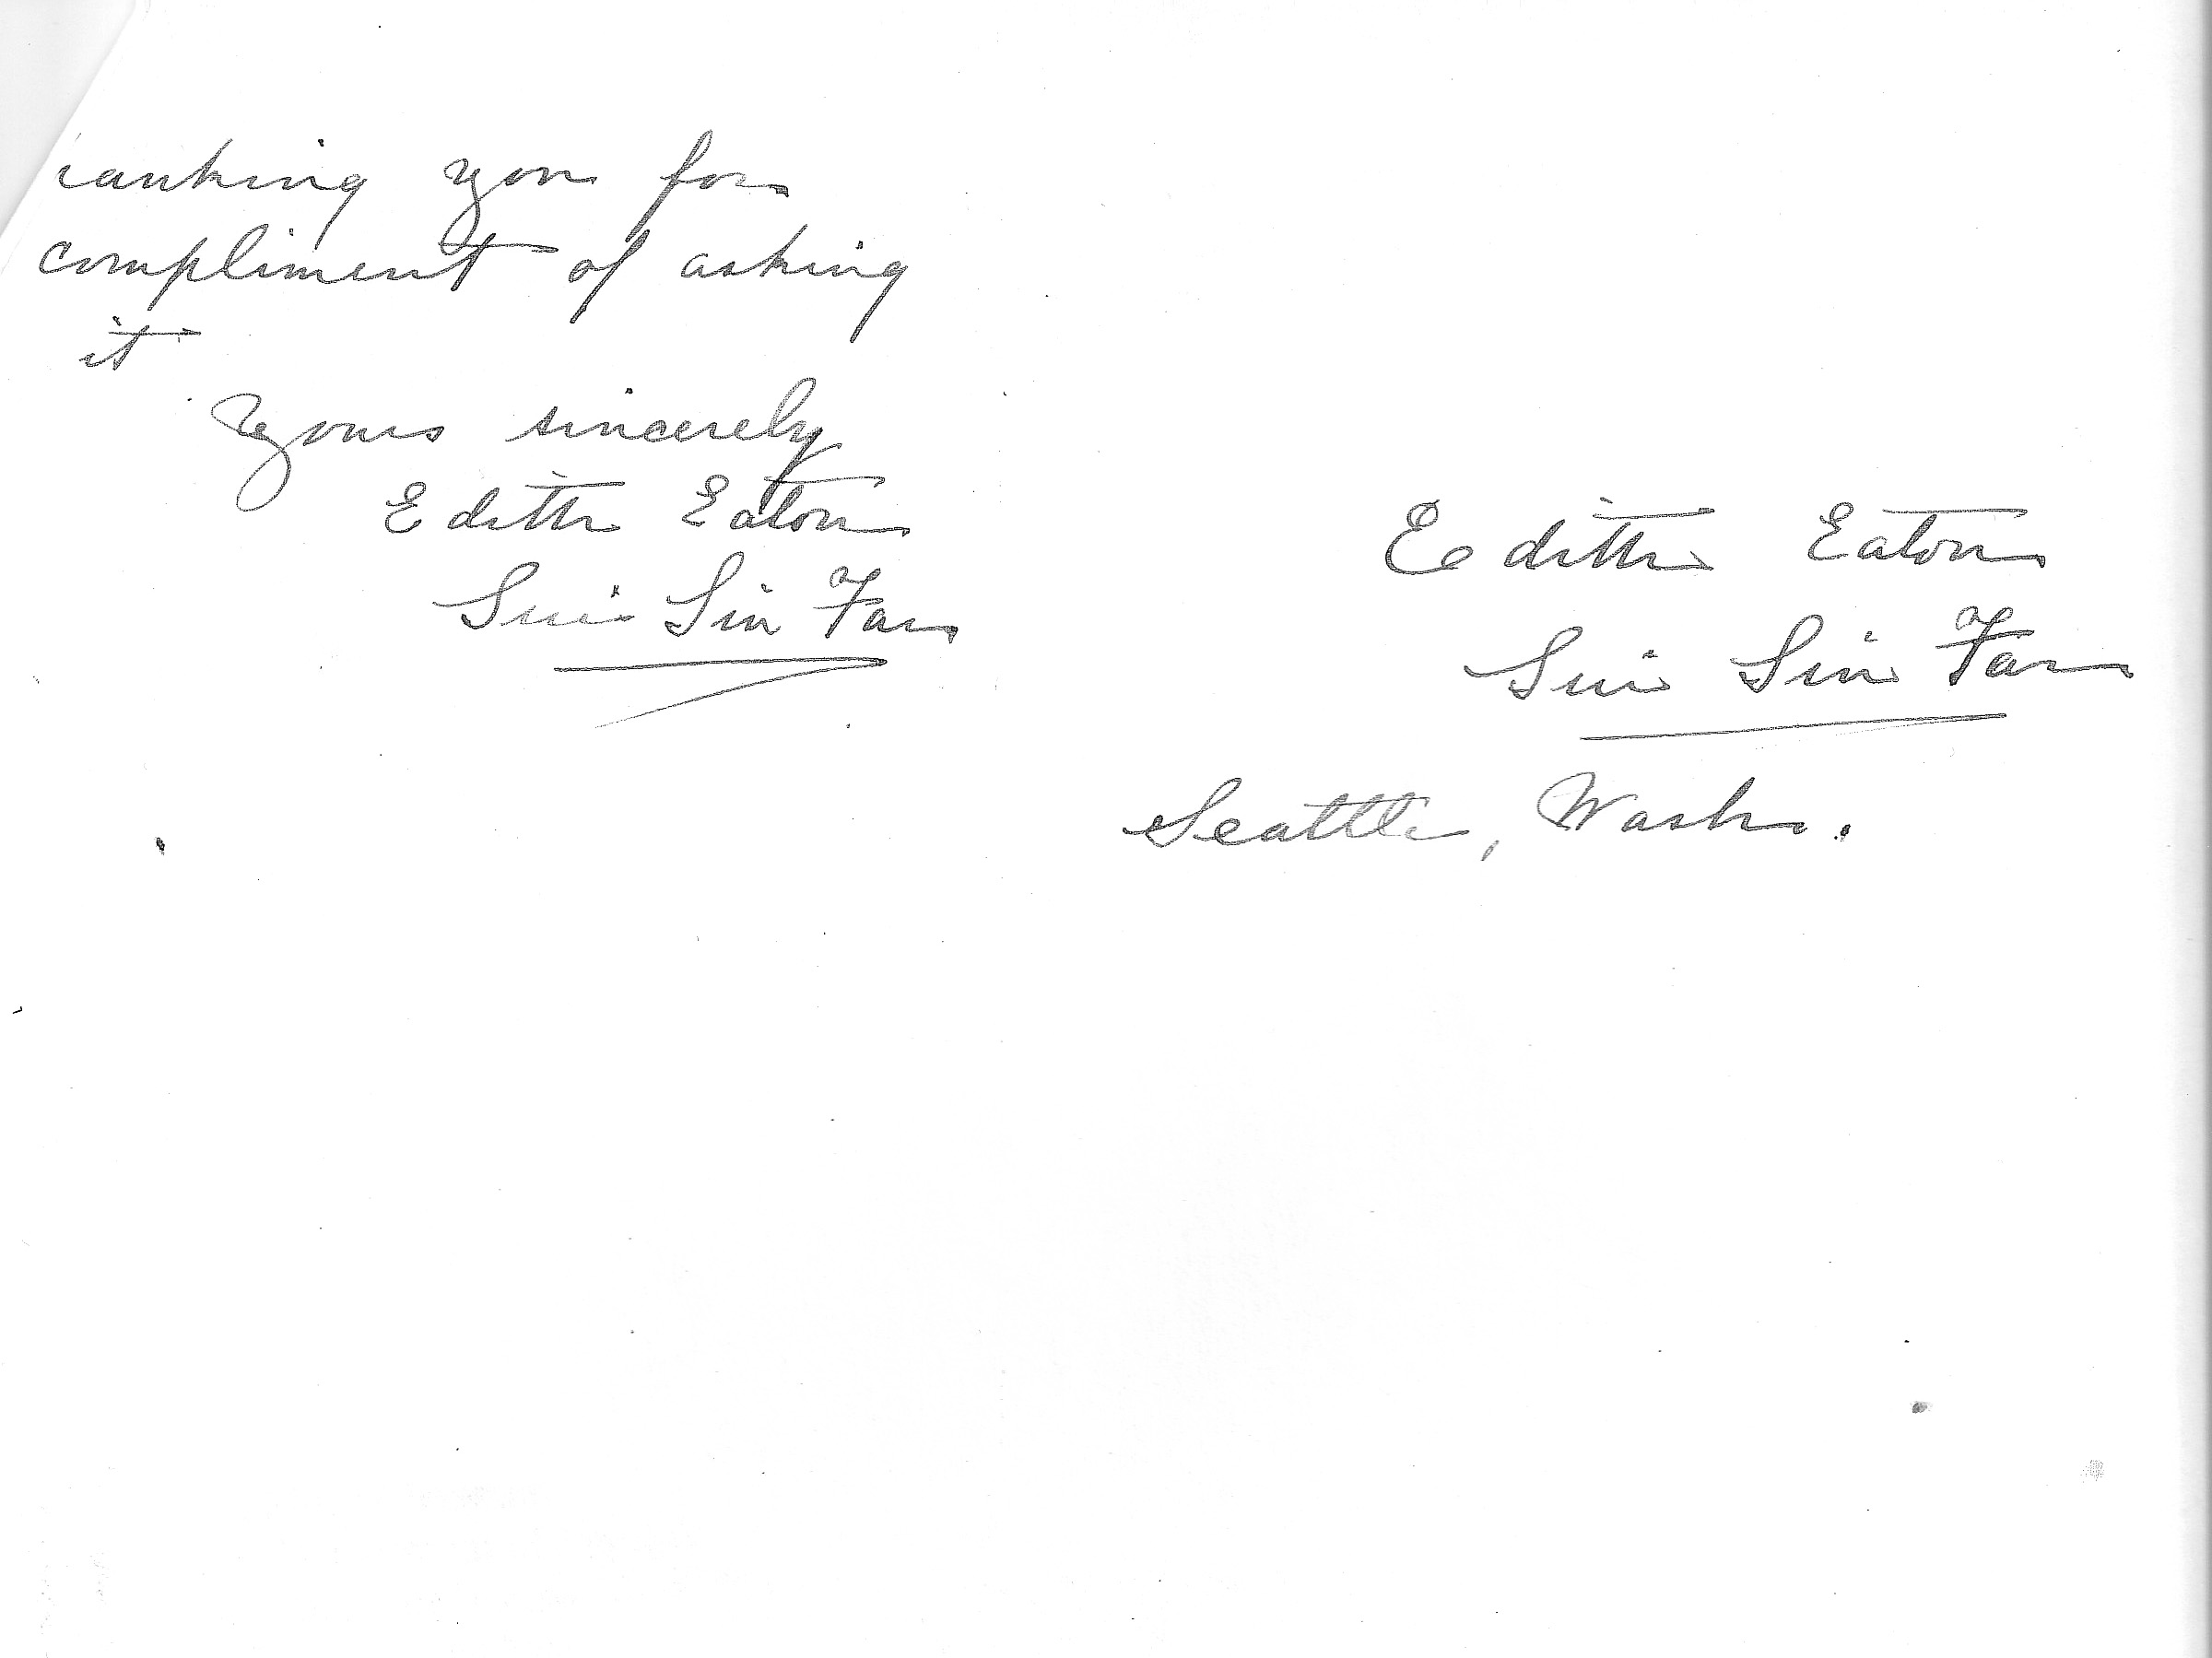 anking you for
compliment of asking
it
Yours sincerely
Edith Eaton
Sui Sin Far
Edith Eaton
Sui Sin Far
Seattle, Wash.